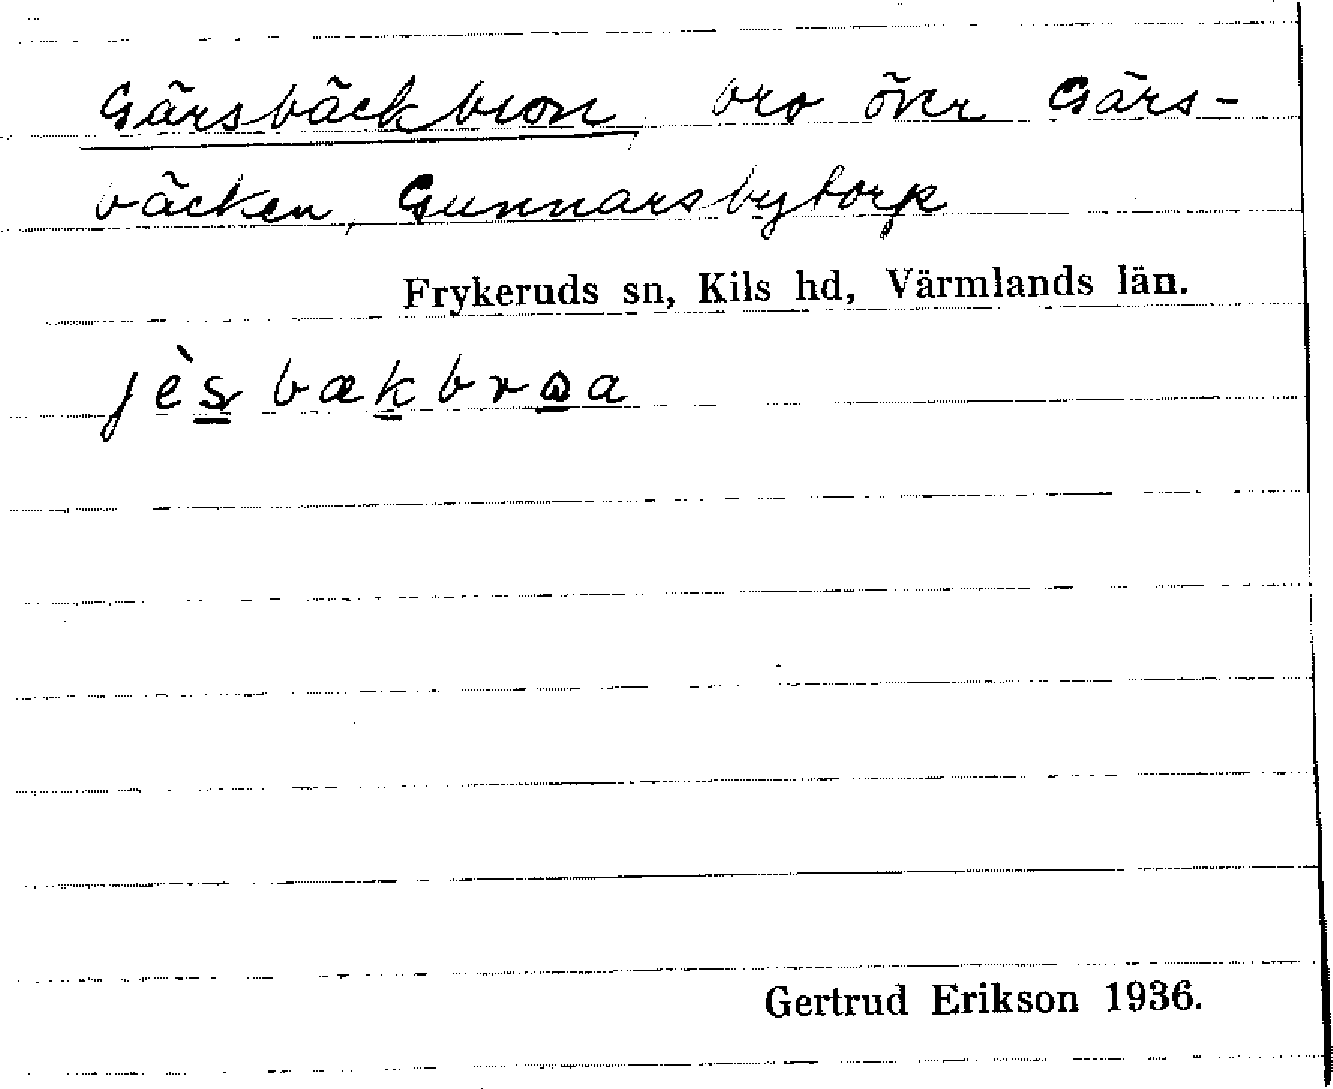 Gärsbäckbron, bro över Gärs-
bäcken, Gunnarsbytorp
Frykeruds sn, Kils hd, Värmlands län.
jès̲bæk̲brω̲a
Gertrud Erikson 1936.